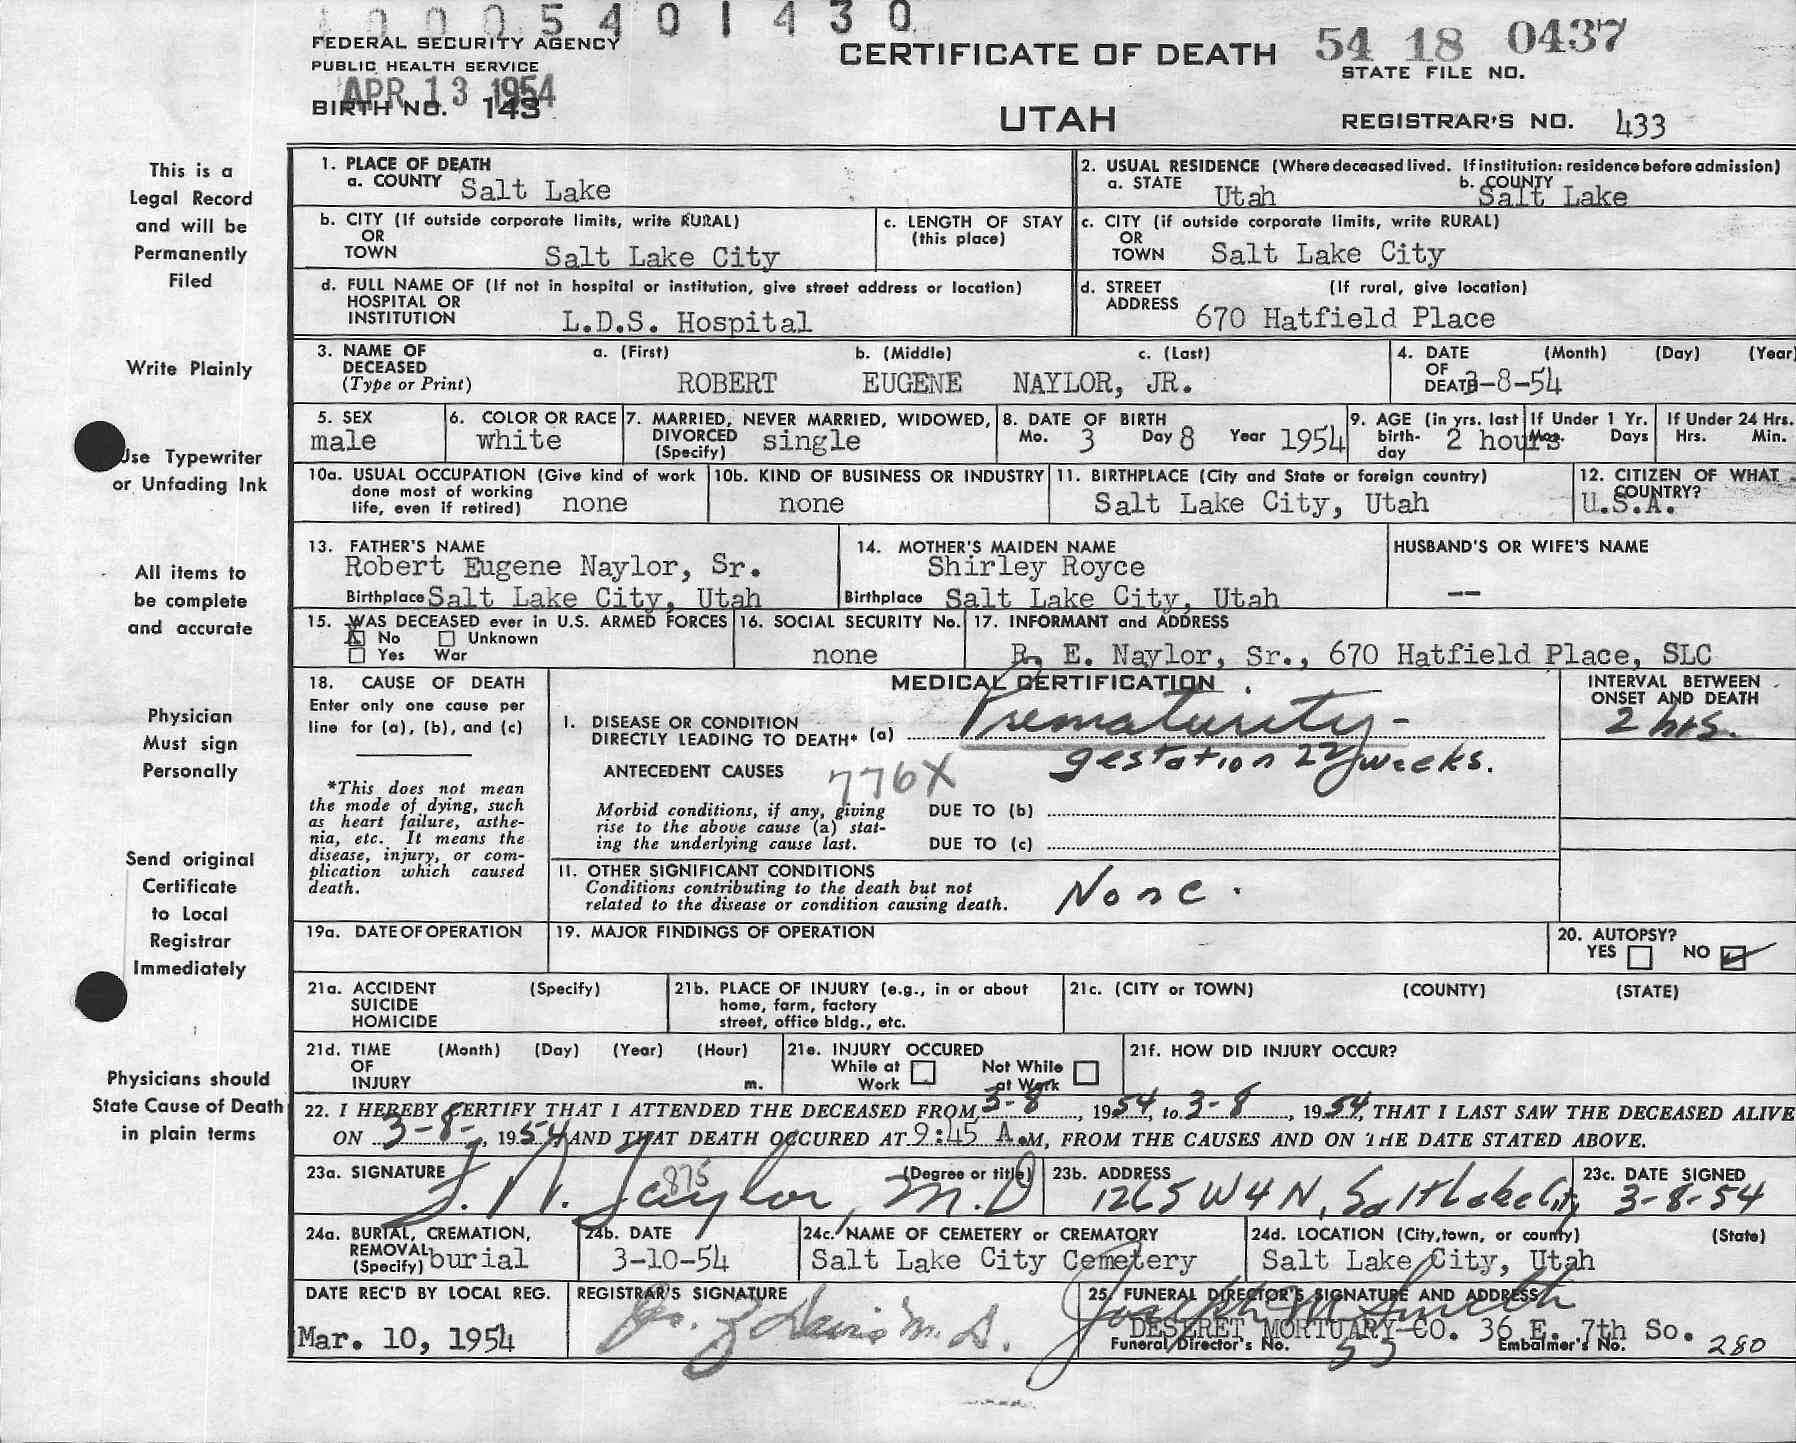 10005401430
FEDERAL SECURITY AGENCY
PUBLIC HEALTH SERVICE
APR 13 1954
BIRTH NO. 143
CERTIFICATE OF DEATH
UTAH
54 18 0437
STATE FILE NO.
REGISTRAR'S NO. 433
This is a
Legal Record
and will be
Permanently
Filed
Write Plainly
Use Typewriter
or Unfading Ink
All items to
be complete
and accurate
Physician
Must sign
Personally
Send original
Certificate
to Local
Registrar
Immediately
Physicians should
State Cause of Death
in plain terms
1. PLACE OF DEATH
a. COUNTY Salt Lake
2. USUAL RESIDENCE (Where deceased lived. If institution: residence before admission)
a. STATE Utah b. COUNTY Salt Lake
b. CITY (If outside corporate limits, write RURAL)
OR
TOWN Salt Lake City
c. LENGTH OF STAY
(this place)
c. CITY (if outside corporate limits, write RURAL)
OR
TOWN Salt Lake City
d. FULL NAME OF (If not in hospital or institution, give street address or location)
HOSPITAL OR
INSTITUTION L.D.S. Hospital
d. STREET (If rural, give location)
ADDRESS 670 Hatfield Place
3. NAME OF DECEASED
(Type or Print)
a. (First) b. (Middle) c. (Last)
ROBERT EUGENE NAYLOR, JR.
4. DATE (Month) (Day) (Year)
OF
DEATH 3-8-54
5. SEX
male
6. COLOR OR RACE
white
7. MARRIED, NEVER MARRIED, WIDOWED,
DIVORCED single
(Specify)
8. DATE OF BIRTH
Mo. 3 Day 8 Year 1954
9. AGE (in yrs. last
birth-
day 2 hours
If Under 1 Yr.
Mos. Days
If Under 24 Hrs.
Hrs. Min.
10a. USUAL OCCUPATION (Give kind of work
done most of working
life, even if retired) none
10b. KIND OF BUSINESS OR INDUSTRY
none
11. BIRTHPLACE (City and State or foreign country)
Salt Lake City, Utah
12. CITIZEN OF WHAT
COUNTRY?
U.S.A.
13. FATHER'S NAME
Robert Eugene Naylor, Sr.
Birthplace Salt Lake City, Utah
14. MOTHER'S MAIDEN NAME
Shirley Royce
Birthplace Salt Lake City, Utah
HUSBAND'S OR WIFE'S NAME
--
15. WAS DECEASED ever in U.S. ARMED FORCES
X No Unknown
Yes War
16. SOCIAL SECURITY No.
none
17. INFORMANT and ADDRESS
R. E. Naylor, Sr., 670 Hatfield Place, SLC
18. CAUSE OF DEATH
Enter only one cause per
line for (a), (b), and (c)
*This does not mean
the mode of dying, such
as heart failure, asthe-
nia, etc. It means the
disease, injury, or com-
plication which caused
death.
MEDICAL CERTIFICATION
I. DISEASE OR CONDITION
DIRECTLY LEADING TO DEATH* (a) Prematurity -
gestation 22 weeks.
INTERVAL BETWEEN
ONSET AND DEATH
2 hrs.
ANTECEDENT CAUSES 776X
Morbid conditions, if any, giving
rise to the above cause (a) stat-
ing the underlying cause last.
DUE TO (b)
DUE TO (c)
II. OTHER SIGNIFICANT CONDITIONS
Conditions contributing to the death but not
related to the disease or condition causing death.
None.
19a. DATE OF OPERATION
19. MAJOR FINDINGS OF OPERATION
20. AUTOPSY?
YES NO
21a. ACCIDENT (Specify)
SUICIDE
HOMICIDE
21b. PLACE OF INJURY (e.g., in or about
home, farm, factory
street, office bldg., etc.
21c. (CITY or TOWN) (COUNTY) (STATE)
21d. TIME (Month) (Day) (Year) (Hour)
OF
INJURY m.
21e. INJURY OCCURED
While at Work Not While at Work
21f. HOW DID INJURY OCCUR?
22. I HEREBY CERTIFY THAT I ATTENDED THE DECEASED FROM 3-8, 1954, to 3-8, 1954, THAT I LAST SAW THE DECEASED ALIVE
ON 3-8-, 1954 AND THAT DEATH OCCURED AT 9:45 A.M, FROM THE CAUSES AND ON THE DATE STATED ABOVE.
23a. SIGNATURE (Degree or title)
Taylor, M.D
875
23b. ADDRESS
1265 W 4 N, Salt Lake City
23c. DATE SIGNED
3-8-54
24a. BURIAL, CREMATION,
REMOVAL
(Specify) burial
24b. DATE
3-10-54
24c. NAME OF CEMETERY OR CREMATORY
Salt Lake City Cemetery
24d. LOCATION (City, town, or county) (State)
Salt Lake City, Utah
DATE REC'D BY LOCAL REG.
Mar. 10, 1954
REGISTRAR'S SIGNATURE
Davis M.D.
25. FUNERAL DIRECTOR'S SIGNATURE AND ADDRESS
Joseph M Smith
DESERET MORTUARY CO. 36 E. 7th So.
Funeral Director's No. 55 Embalmer's No. 280